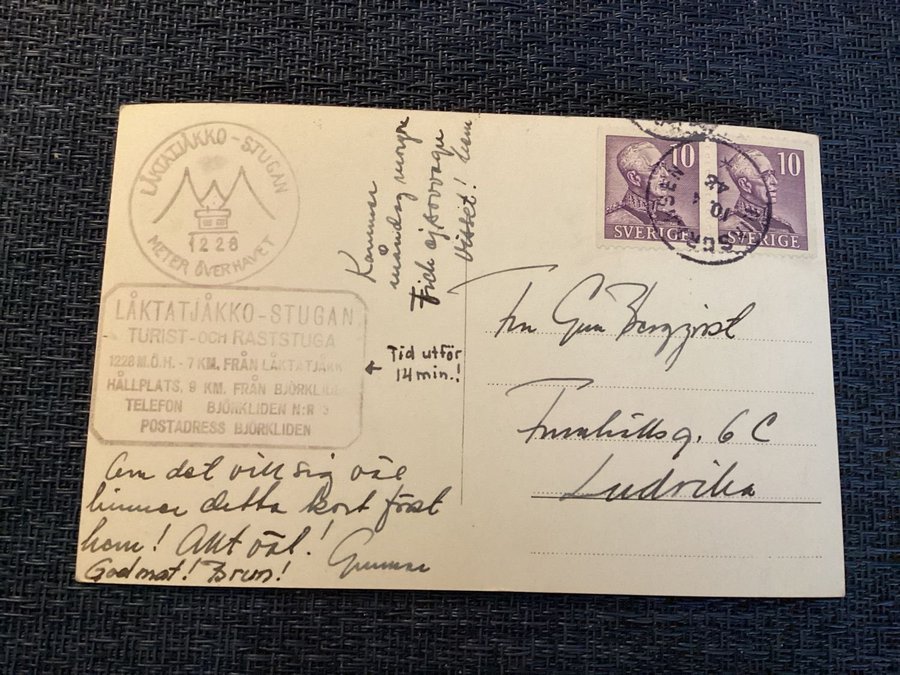 LÅKTATJÅKKO-STUGAN
1228
METER ÖVER HAVET
LÅKTATJÅKKO-STUGAN
TURIST- OCH RASTSTUGA
1228 M.Ö.H. - 7 KM. FRÅN LÅKTATJÅKK
HÅLLPLATS, 9 KM. FRÅN BJÖRKLIDE
TELEFON BJÖRKLIDEN N:R 3
POSTADRESS BJÖRKLIDEN
Om det vill sig väl
hinner detta kort först
hem! Allt väl!
God mat! Brun! Gunnar
Kommer
måndag morgon
Fick ej sovvagn
↑ Tid utför
14 min.!
10 10
SVERIGE SVERIGE
10. 4
48
Fru Gun Bergqvist
6 C
Ludvika